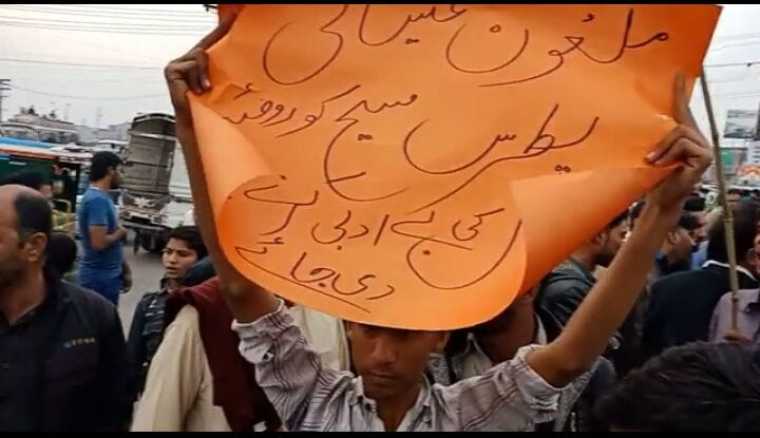 ملعون عیسائی
پطرس مسیح کو روضۂ
کی بے ادبی کرنے
دی جائے